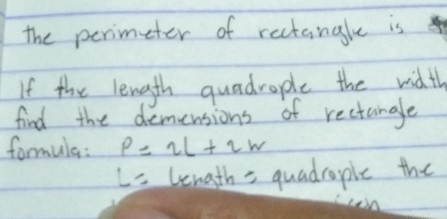 the perimeter of rectangle is
If the length quadrople the width
find the demensions of rectangle
formula: P = 2L + 2W
L = length = quadrople the